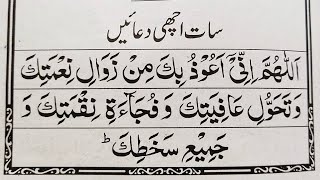 سات اچھی دعائیں
اَللّٰهُمَّ اِنِّیْۤ اَعُوْذُ بِكَ مِنْ زَوَالِ نِعْمَتِكَ
وَتَحَوُّلِ عَافِيَتِكَ وَفُجَاءَةِ نِقْمَتِكَ وَ
جَمِيْعِ سَخَطِكَ ؕ